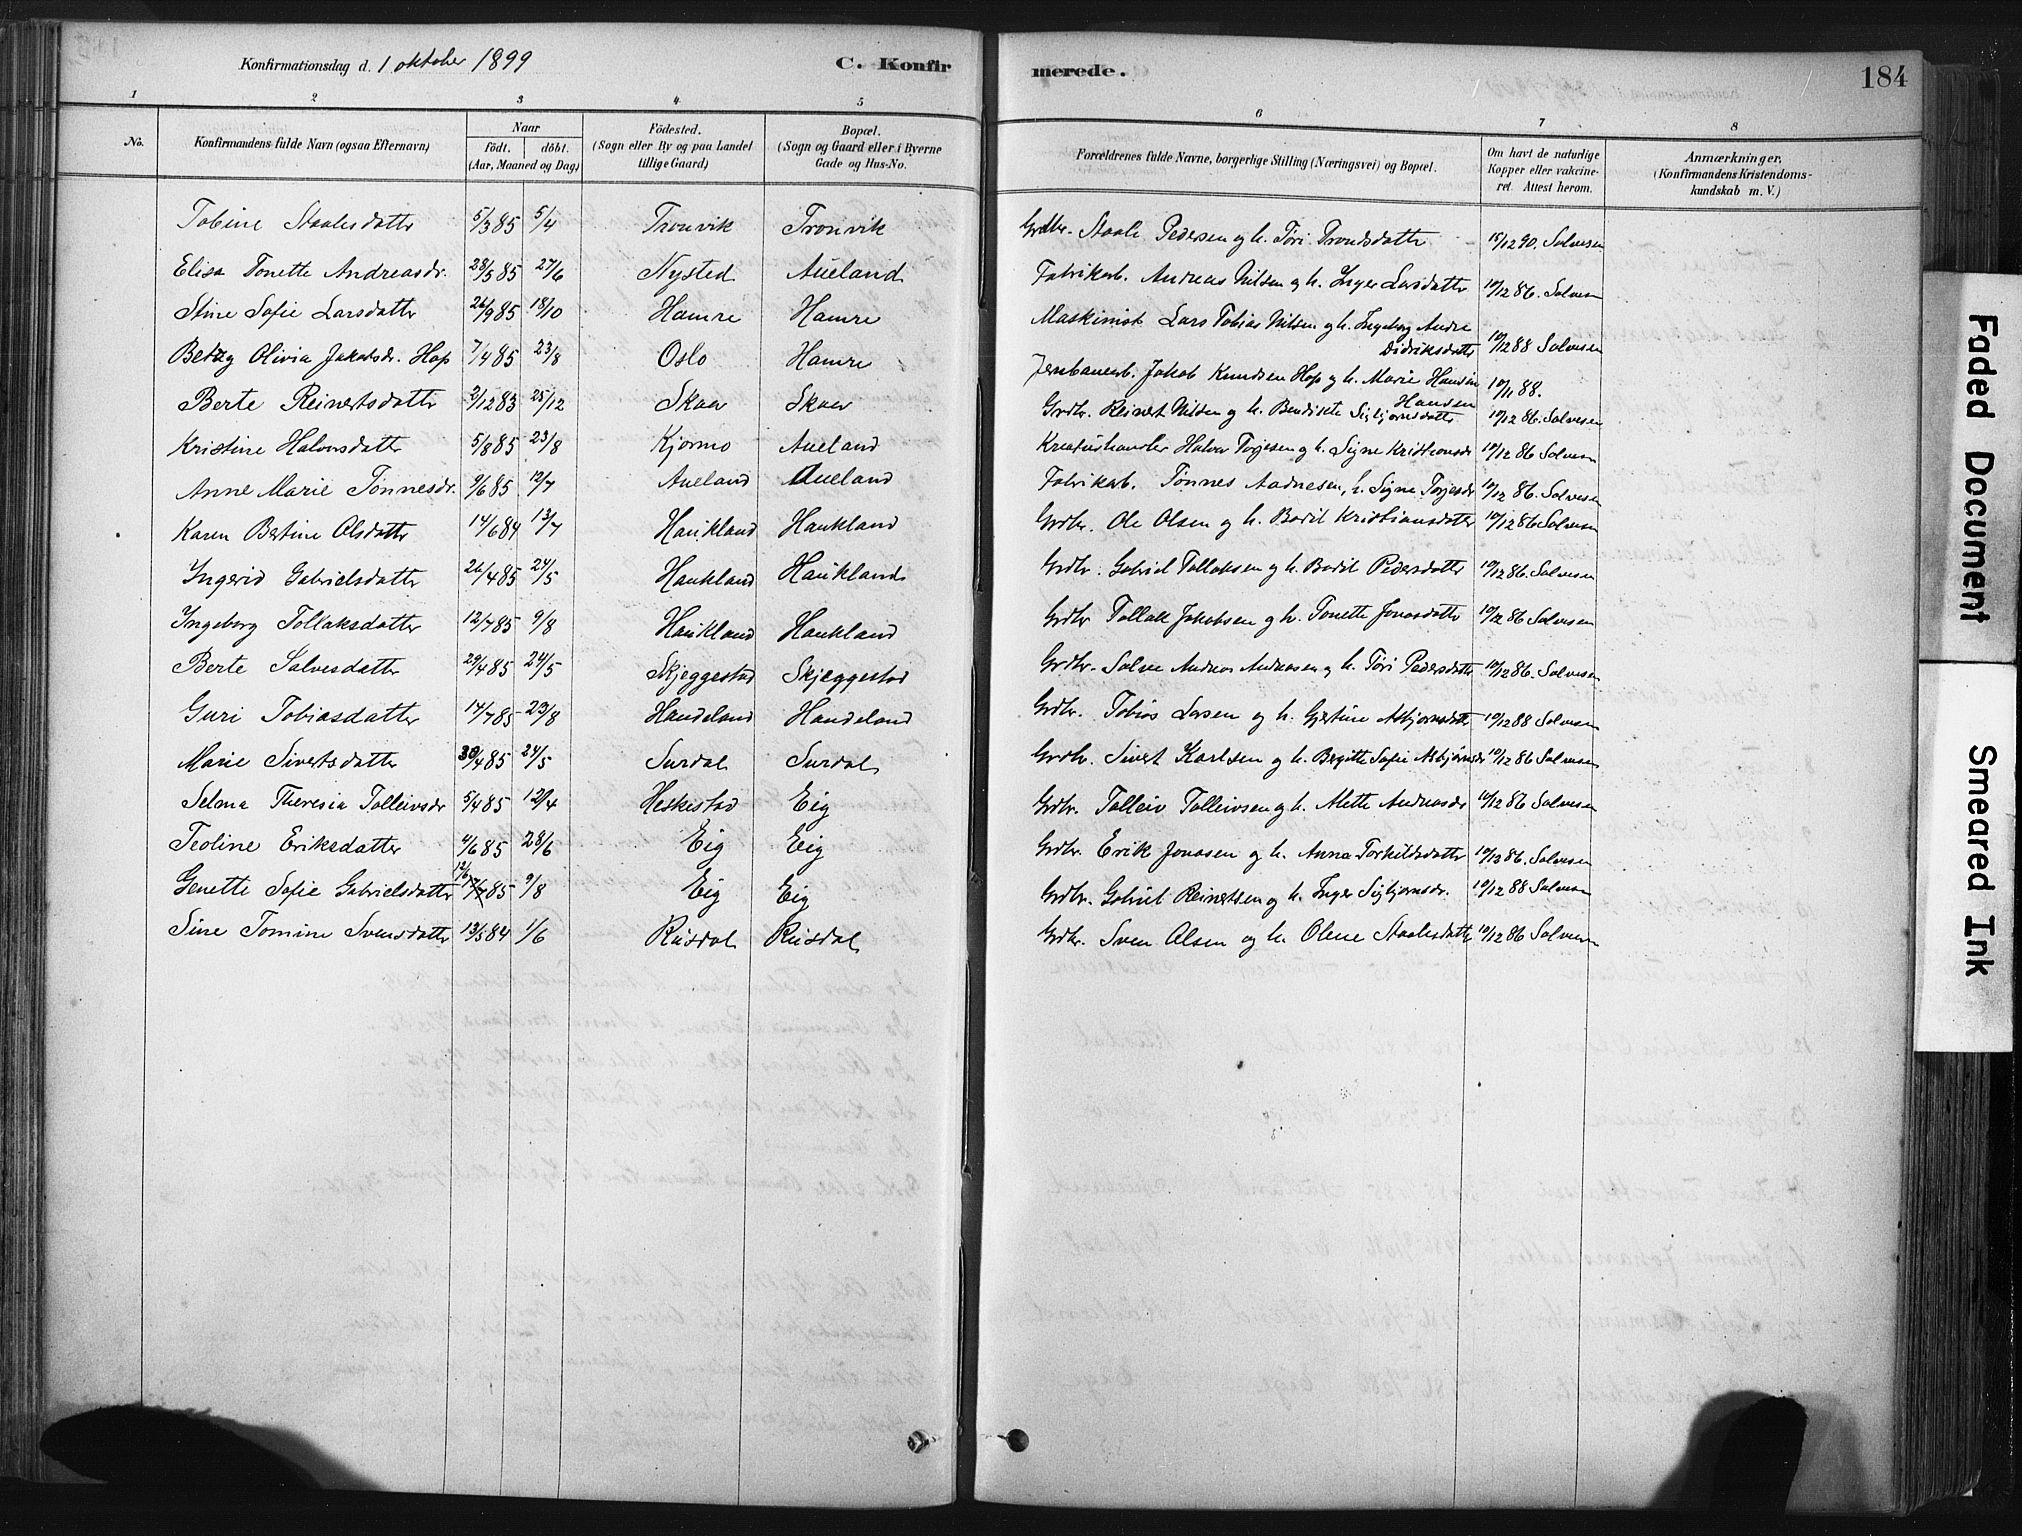 Konfirmationsdag d. 1 oktober 1899
C. Konfir
merede.
184
1 2 3 4 5 6 7 8
No.
Konfirmandens fulde Navn (ogsaa Efternavn)
Naar
födt. döbt.
(Aar, Maaned og Dag)
Födested.
(Sogn eller By og paa Landet
tillige Gaard)
Bopæl.
(Sogn og Gaard eller i Byerne
Gade og Hus-No.
Forældrenes fulde Navne, borgerlige Stilling (Næringsvei) og Bopæl.
Om havt de naturlige
Kopper eller vakcine-
ret. Attest herom.
Anmærkninger.
(Konfirmandens Kristendoms-
kundskab m. V.)
Tobine Staalesdatter 5/3 85 5/4 Tronvik Tronvik Grdbr. Staale Pedersen og h. Töri Trondsdatter 15/12 90. Salvesen
Elisa Tonette Andreasdr. 28/5 85 27/6 Nysted Aueland Fabrikarb. Andreas Nilsen og h. Inger Larsdatter 10/12 86. Salvesen
Stine Sofie Larsdatter 26/9 85 18/10 Hamre Hamre Maskinist Lars Tobias Nilsen og h. Ingeborg Andre
Didriksdatter 10/12 88 Salvesen
Betzy Olivia Jakobsdr. Hop 7/4 85 23/8 Oslo Hamre Jernbanearb. Jakob Knudsen Hop og h. Marie Hansine
Hansen 10/11 88.
Berte Reinertsdatter 2/12 83 25/12 Skaar Skaar Grdbr. Reinert Nilsen og h. Bendikte Sigbjørnsdatter 10/12 86. Salvesen
Kristine Halvorsdatter 5/8 85 23/8 Kjormo Aueland Kreaturhandler Halvor Torjesen og h. Signe Kristiansdr 10/12 86 Salvesen
Anne Marie Tønnesdr. 9/6 85 12/7 Aueland Aueland Fabrikarb. Tønnes Aadnesen, h. Signe Torjesdr 10/12 86. Salvesen
Karen Bertine Olsdatter 14/6 84 13/7 Haukland Haukland Grdbr. Ole Olsen og h. Bodil Kristiansdatter 10/12 86 Salvesen
Ingerid Gabrielsdatter 26/4 85 24/5 Haukland Haukland Grdbr. Gabriel Tollaksen og h. Bodil Pedersdatter 10/12 86. Salvesen
Ingeborg Tollaksdatter 12/7 85 9/8 Haukland Haukland Grdbr. Tollak Jakobsen og h. Tonette Jonasdatter 10/12 86 Salvesen
Berte Salvesdatter 29/4 85 24/5 Skjeggestad Skjeggestad Grdbr. Salve Andreas Andreasen og h. Töri Pedersdatter 10/12 86. Salvesen
Guri Tobiasdatter 14/7 85 23/8 Handeland Handeland Grdbr. Tobias Larsen og h. Gjertine Asbjørnsdatter 10/12 88 Salvesen
Marie Sivertsdatter 30/4 85 24/5 Surdal Surdal Grdbr. Sivert Karlsen og h. Bergitte Sofie Asbjørnsdr 10/12 86 Salvesen
Selma Theresia Tolleivsdr 5/4 85 12/4 Heskestad Eig Grdbr. Tolleiv Tolleivsen og h. Alette Andreasdr 10/12 86 Salvesen
Teoline Eriksdatter 4/6 85 28/6 Eig Eig Grdbr. Erik Jonasen og h. Anna Torkildsdatter 10/12 86. Salvesen
Genette Sofie Gabrielsdatter 12/6 85 9/8 Eig Eig Grdbr. Gabriel Reinertsen og h. Inger Sigbjørnsdr. 10/12 88 Salvesen
Sine Tomine Svensdatter 13/5 84 1/6 Rusdal Rusdal Grdbr. Sven Olsen og h. Olene Staalesdatter 10/12 86 Salvesen
Faded Document
Smeared Ink